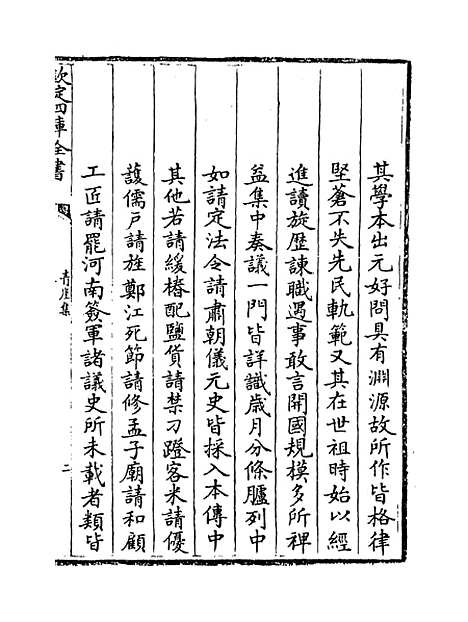 其學本出元好問具有淵源故所作皆格律
堅蒼不失先民軌範又其在世祖時始以經
進讀旋歴諫職遇事敢言開國規模多所裨
益集中奏議一門皆詳識歳月分條臚列中
如請定法令請肅朝儀元史皆採入本傳中
其他若請緩椿配鹽貨請禁刁蹬客米請優
護儒户請旌鄭江死節請修孟子廟請和顧
工匠請罷河南簽軍諸議史所未載者類皆
欽定四庫全書
青崖集
二